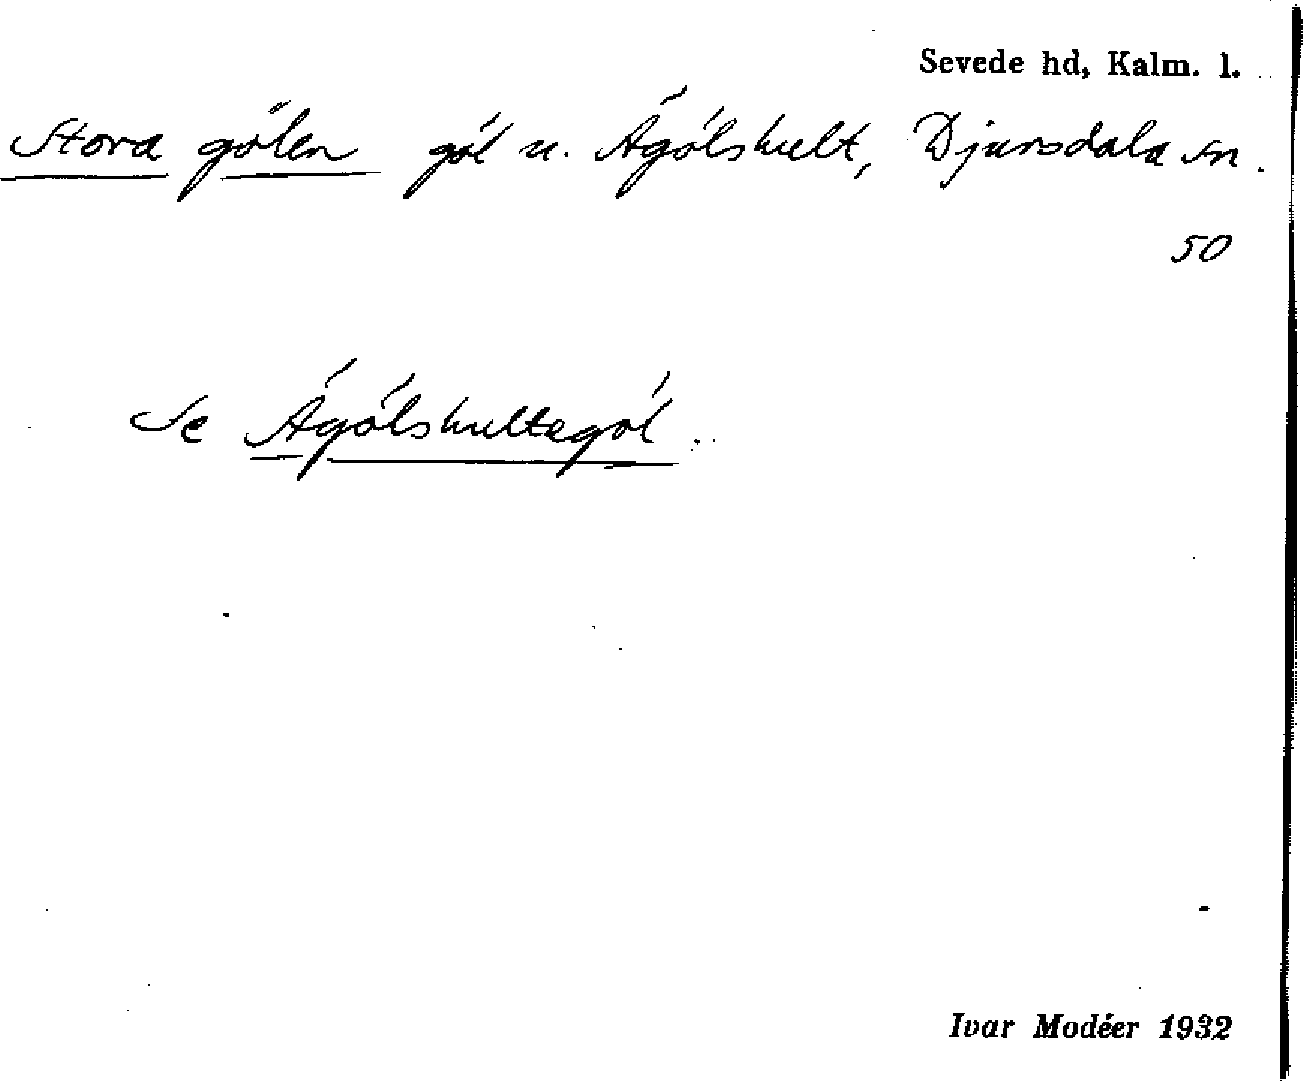 Sevede hd, Kalm. l.
Stora gölen göl u. Ägölshult, Djursdala sn.
50
Se Ägölshultagöl.
Ivar Modéer 1932